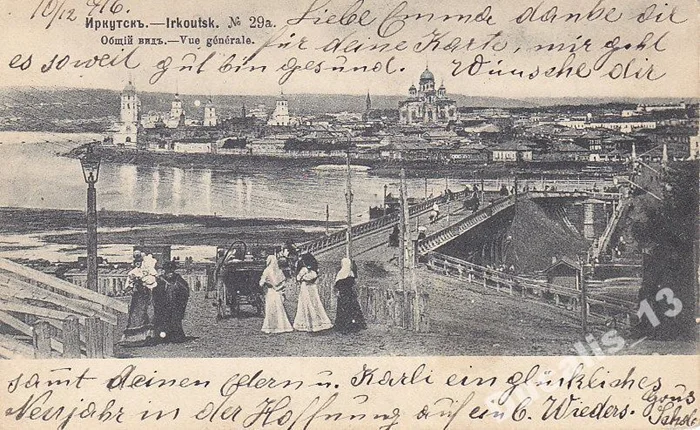 10/12 916.
Иркутскъ.—Irkoutsk. № 29a.
Общій видъ.—Vue générale.
Liebe Emma danke dir
für deine Karte, mir geht
es soweit gut bin gesund. Wünsche dir
samt deinen Eltern u. Karli ein glückliches
Neujahr in der Hoffnung auf ein b. Wieders.